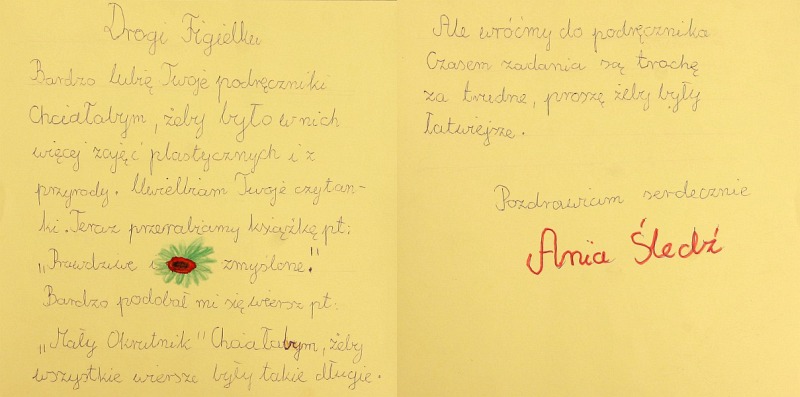 Drogi Figielku
Bardzo lubię Twoje podręczniki
Chciałabym, żeby było w nich
więcej zajęć plastycznych i z
przyrody. Uwielbiam Twoje czytan-
ki. Teraz przerabiamy książkę pt:
„Prawdziwe i zmyślone."
Bardzo podobał mi się wiersz pt:
„Mały Okrutnik" Chciałabym, żeby
wszystkie wiersze były takie długie.
Ale wróćmy do podręcznika
Czasem zadania są trochę
za trudne, proszę żeby były
łatwiejsze.
Pozdrawiam serdecznie
Ania Śledź